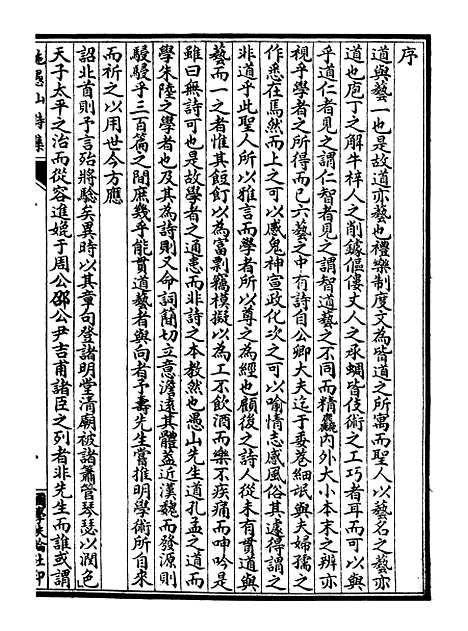 序
道與藝一也是故道亦藝也禮樂制度文為皆道之所寓而聖人以藝名之藝亦
道也庖丁之解牛梓人之削鐻傴僂丈人之承蜩皆伎術之工巧者耳而可以與
乎道仁者見之謂仁智者見之謂智道藝之不同而精麤內外大小本末之辨亦
視乎學者之所得而已六藝之中有詩自公卿大夫迄于委巷細氓與夫婦孺之
作悉在焉然而上之可以感鬼神宣政化次之可以喻情志感風俗其遽得謂之
非道乎此聖人所以雅言而學者所以尊之為經也顧後之詩人從未有貫道與
藝而一之者惟其飣餖以為富剽竊模擬以為工不飲酒而樂不疾痛而呻吟是
雖曰無詩可也是故學者之通患而非詩之本教然也愚山先生道孔孟之道而
學朱陸之學者也及其為詩則又命詞簡切立意澹遠其體蓋近漢魏而發源則
駸駸乎三百篇之閫庶幾乎能貫道藝者與向者予壽先生嘗推明學術所自來
而祈之以用世今方應
詔北首則予言殆將驗矣異時以其章句登諸明堂清廟被諸簫管琴瑟以潤色
天子太平之治而從容進娓于周公邵公尹吉甫諸臣之列者非先生而誰或謂
施愚山詩集
國學扶輪社印